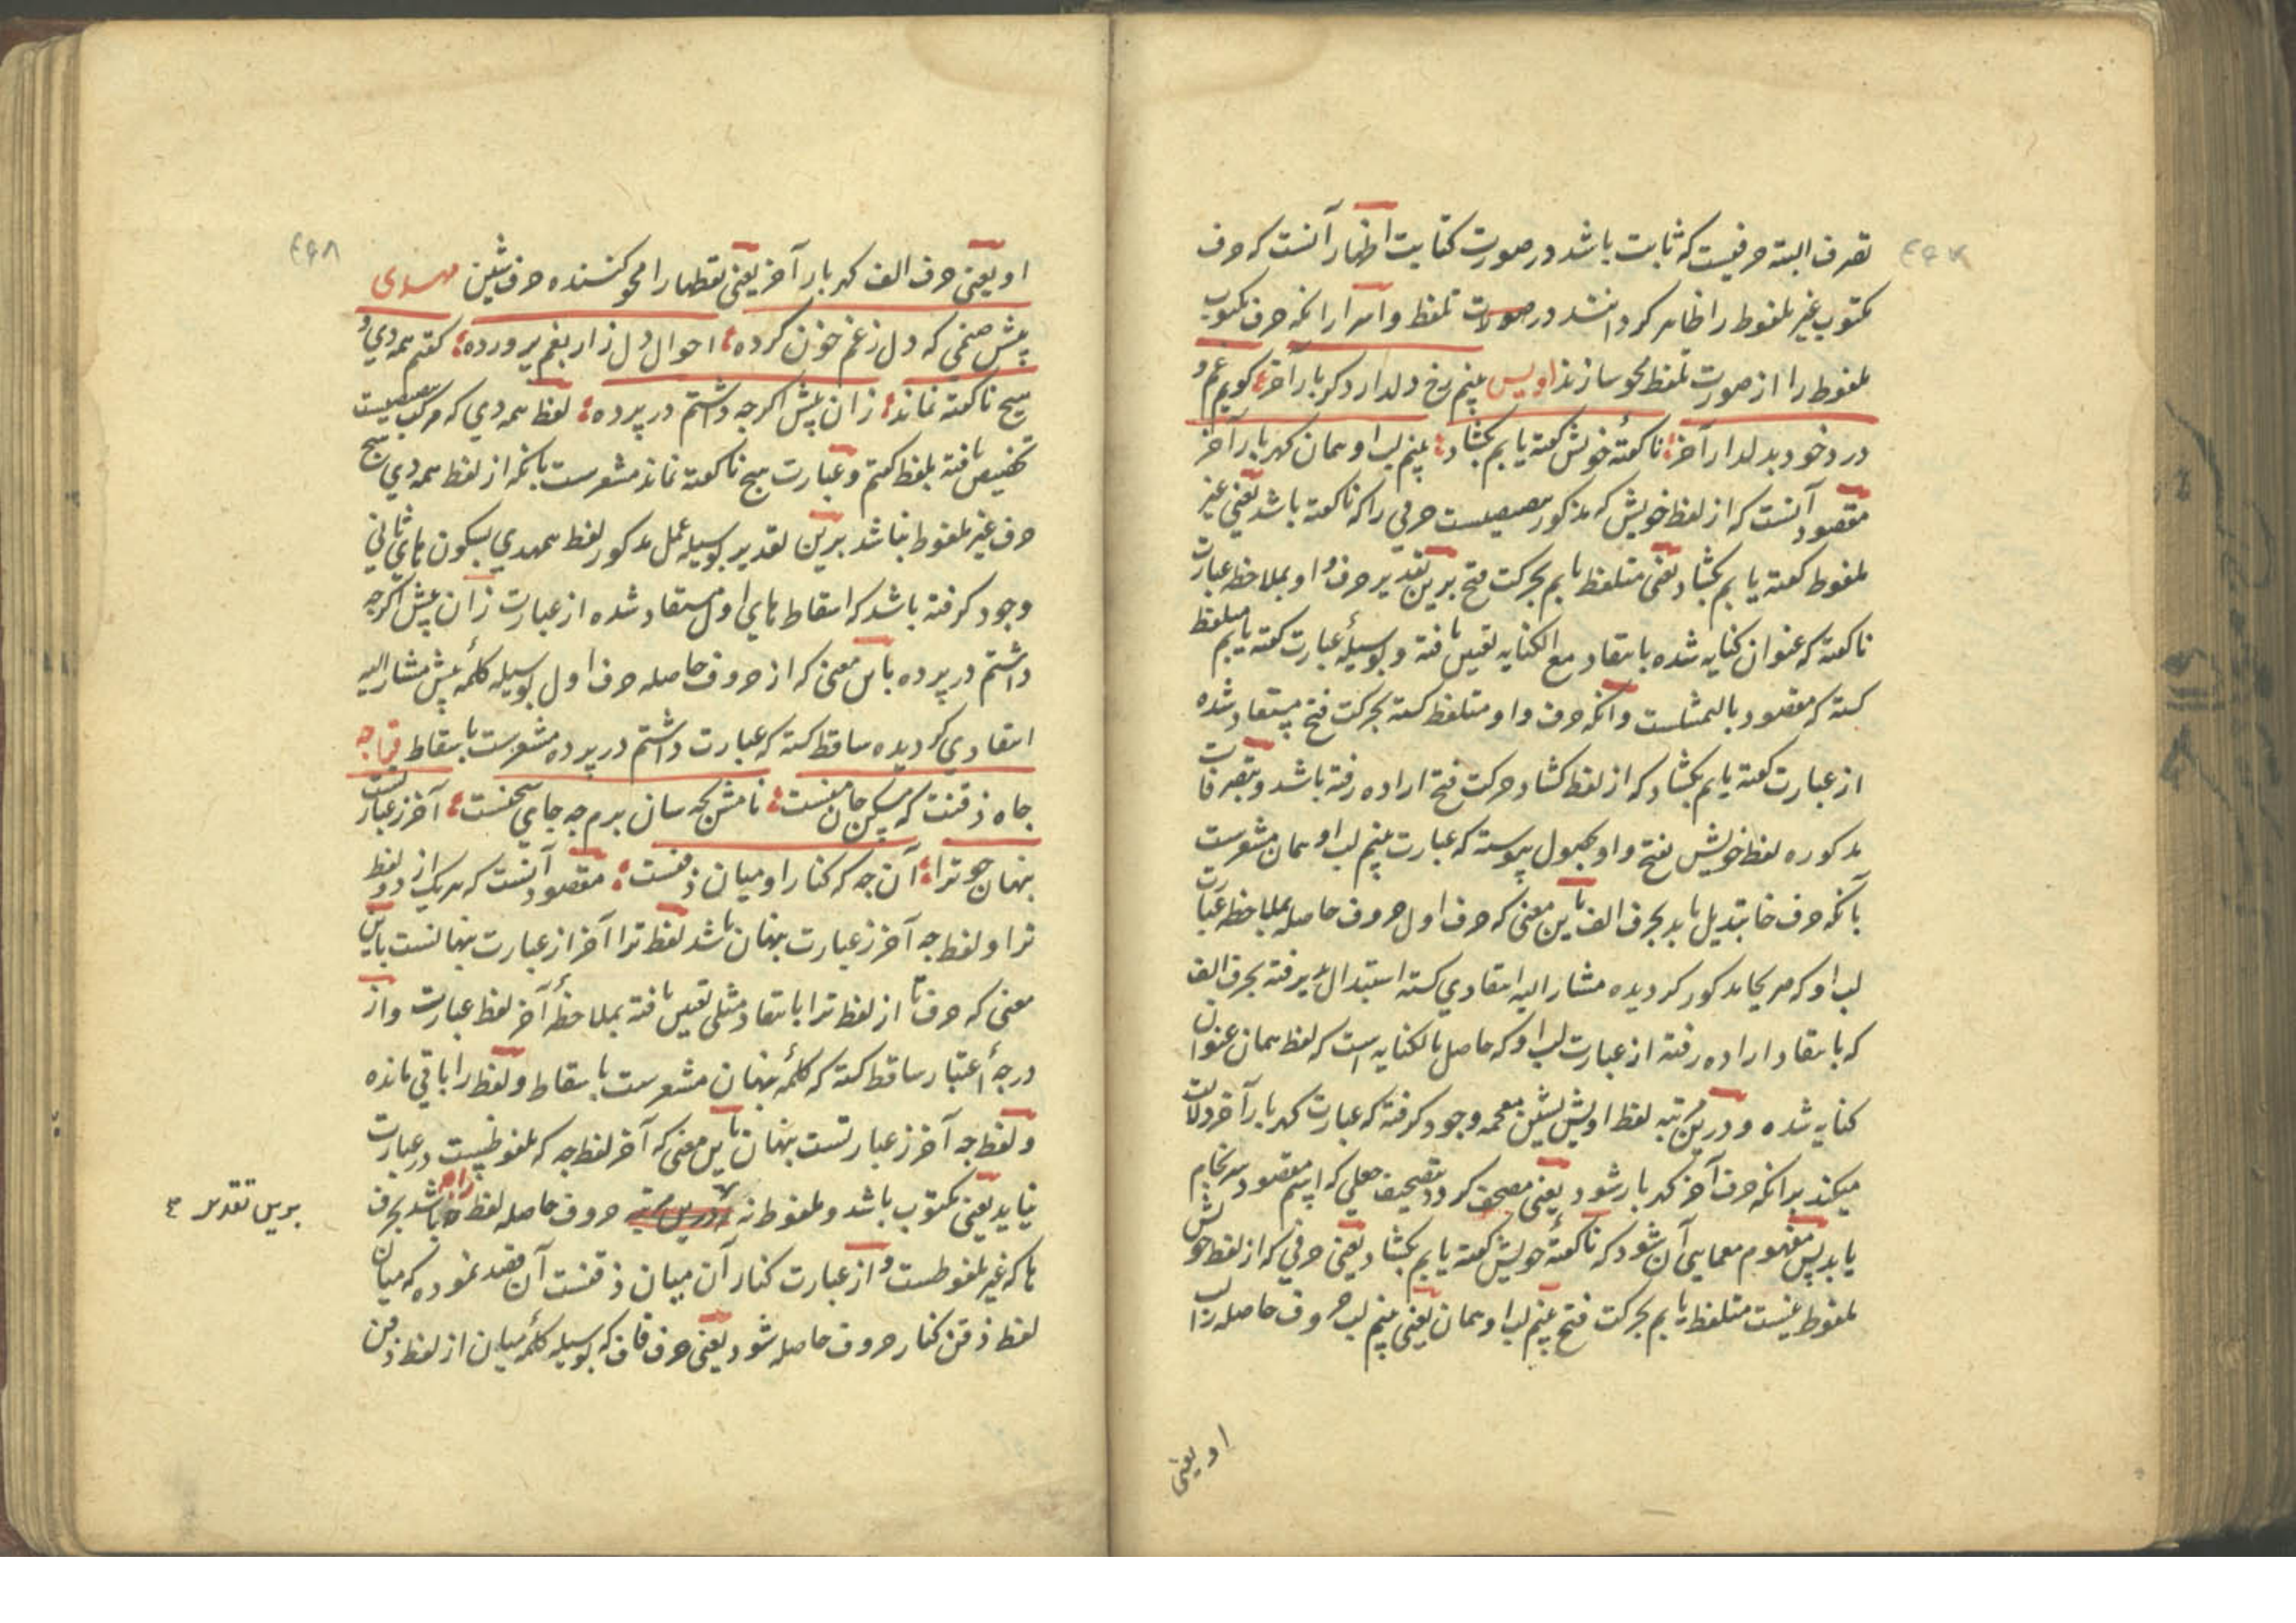 تصرف البته حرفیست که ثابت باشد در صورت کتابت اظهار آنست که حرف
مکتوب غیر ملفوظ را ظاهر کردانند در صورت تلفظ و اسرار انکه حرف مکتوب
ملفوظ را از صورت تلفظ محو سازند اویس بینم رخ دلدار دکر بار آخر کویم غم و
درد خود بدلدار آخر ناکفتهٔ خویش کفته یابم بکشاد بینم لب او همان کهر بار آخر
مقصود آنست که از لفظ خویش که مذکور مصیبست حرفی را که ناکفته باشد یعنی غیر
ملفوظ کفته یابم بکشاد یعنی متلفظ یابم بحرکت فتح برین تقدیر حرف واو بملاحظه عبارت
ناکفته که عنوان کنایه شده بانتقاد مع الکنایه تعیین یافته و بوسیلهٔ عبارت کفته یابم متلفظ
کشته که مقصود بالتمثلست وانکه حرف واو متلفظ کشته بحرکت فتح مستفاد شده
از عبارت کفته یابم بکشاد که از لفظ کشاد حرکت فتح اراده رفته باشد و بتصرفات
مذکوره لفظ خویش بفتح واو بحصول پیوسته که عبارت بینم لب او همان مشعرست
بآنکه حرف خا تبدیل یابد بحرف الف باین معنی که حرف اول حروف حاصله بملاحظه عبارت
لب او که صریحا مذکور کردیده مشار الیه انتقادی کشته استبدال پذیرفته بحرف الف
که بانتقاد اراده رفته از عبارت لب او که حاصل بالکنایه است که لفظ همان عنوان
کنایه شده و درین مرتبه لفظ اویش بشین معجمه وجود کرفته که عبارت کهر بار آخر دلالت
میکند برانکه حرف آخر کهر بار شود یعنی مصحف کردد بتصحیف جعلی که اسم مقصود سرنجام
یابد پس مفهوم معمایی آن شود که ناکفتهٔ خویش کفته یابم بکشاد یعنی حرفی که از لفظ خویش
ملفوظ نیست متلفظ یابم بحرکت فتح بینم لب او همان یعنی بینم لب حروف حاصله را لب
او یعنی
او یعنی حرف الف کهر بار آخر یعنی نقطها را محو کننده حرف شین مهدی
پیش صنمی که دل ز غم خون کرده احوال دل زار بغم پرورده کفتم همه دی و
هیچ ناکفته نماند زان پیش اکرچه داشتم در پرده لفظ همه دی که مرکب مصیبست
تخصیص یافته بلفظ کفتم و عبارت هیچ ناکفته نماند مشعرست بانکه از لفظ همه دی هیچ
حرف غیر ملفوظ نباشد برین تقدیر بوسیله عمل مذکور لفظ همهدی بسکون های ثانی
وجود کرفته باشد که اسقاط های اول مستفاد شده از عبارت زان پیش اکرچه
داشتم در پرده باین معنی که از حروف حاصله حرف اول بوسیله کلمهٔ پیش مشار الیه
انتقادی کردیده ساقط کشته که عبارت داشتم در پرده مشعرست باسقاط
چاه ذقنت که مسکن جان منست نامش بچه سان برم چه جای سخنست آخر ز عبارتست
پنهان چو ترا آن چه که کنار او میان ذقنست مقصود آنست که هریک از دو لفظ
ترا و لفظ چه آخر ز عبارت پنهان باشد لفظ ترا آخر از عبارت پنهانست باین
معنی که حرف تا از لفظ ترا بانتقاد مثلی تعیین یافته بملاحظهٔ آخر لفظ عبارت و از
درجهٔ اعتبار ساقط کشته که کلمهٔ پنهان مشعرست باسقاط و لفظ را باقی مانده
و لفظ چه آخر ز عبارتست پنهان باین معنی که آخر لفظ چه که ملفوظ نیست در عبارت
نیاید یعنی مکتوب باشد و ملفوظ نه حروف حاصله لفظ راه باشد بحرف
برین تقدیر
ها که غیر ملفوظست و از عبارت کنار آن میان ذقنست آن قصد نموده که میان
لفظ ذقن کنار حروف حاصله شود یعنی حرف قاف که بوسیله کلمهٔ میان از لفظ ذقن